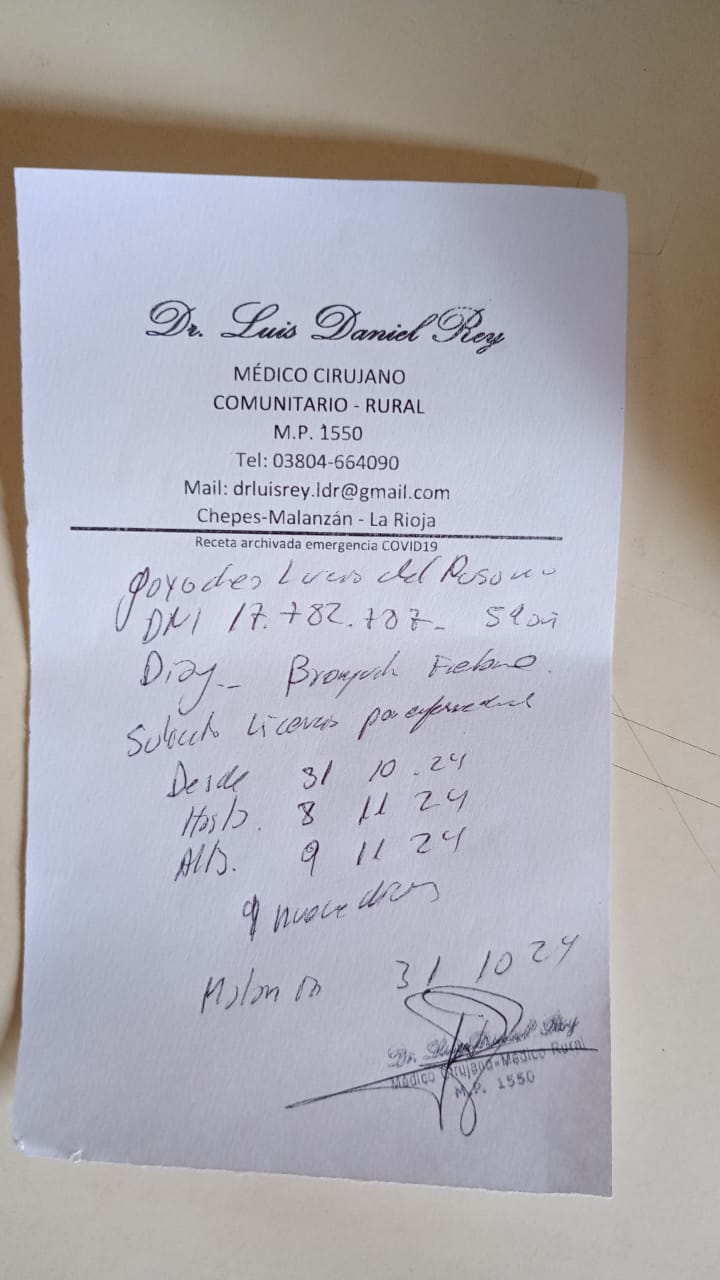 Dr. Luis Daniel Rey
MÉDICO CIRUJANO
COMUNITARIO - RURAL
M.P. 1550
Tel: 03804-664090
Mail: drluisrey.ldr@gmail.com
Chepes-Malanzán - La Rioja
Receta archivada emergencia COVID19
del
DNI 17.782.787-
Diag_
Licencia por enfermedad
Desde 31 10.24
Hasta. 8 11 24
Alta. 9 11 24
9 nueve dias
31 10 24
Dr. Luis Daniel Rey
Médico Cirujano-Médico Rural
M.P. 1550